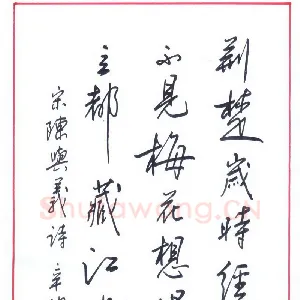 荆楚歲時經
不見梅花想
立都藏江
宋陳與義詩辛
Shufawang.CN